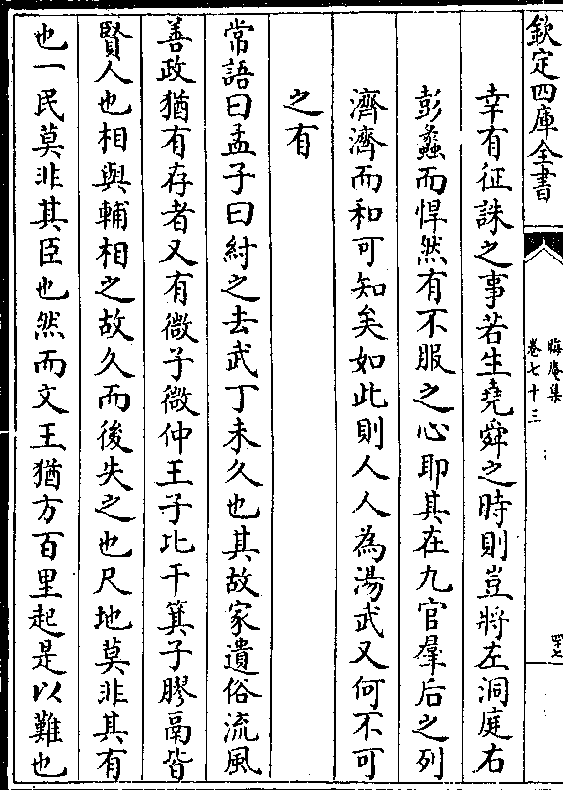 欽定四庫全書
晦庵集
卷七十三
幸有征誅之事若生堯舜之時則豈將左洞庭右
彭蠡而悍然有不服之心耶其在九官羣后之列
濟濟而和可知矣如此則人人為湯武又何不可
之有
常語曰孟子曰紂之去武丁未久也其故家遺俗流風
善政猶有存者又有微子微仲王子比干箕子膠鬲皆
賢人也相與輔相之故久而後失之也尺地莫非其有
也一民莫非其臣也然而文王猶方百里起是以難也